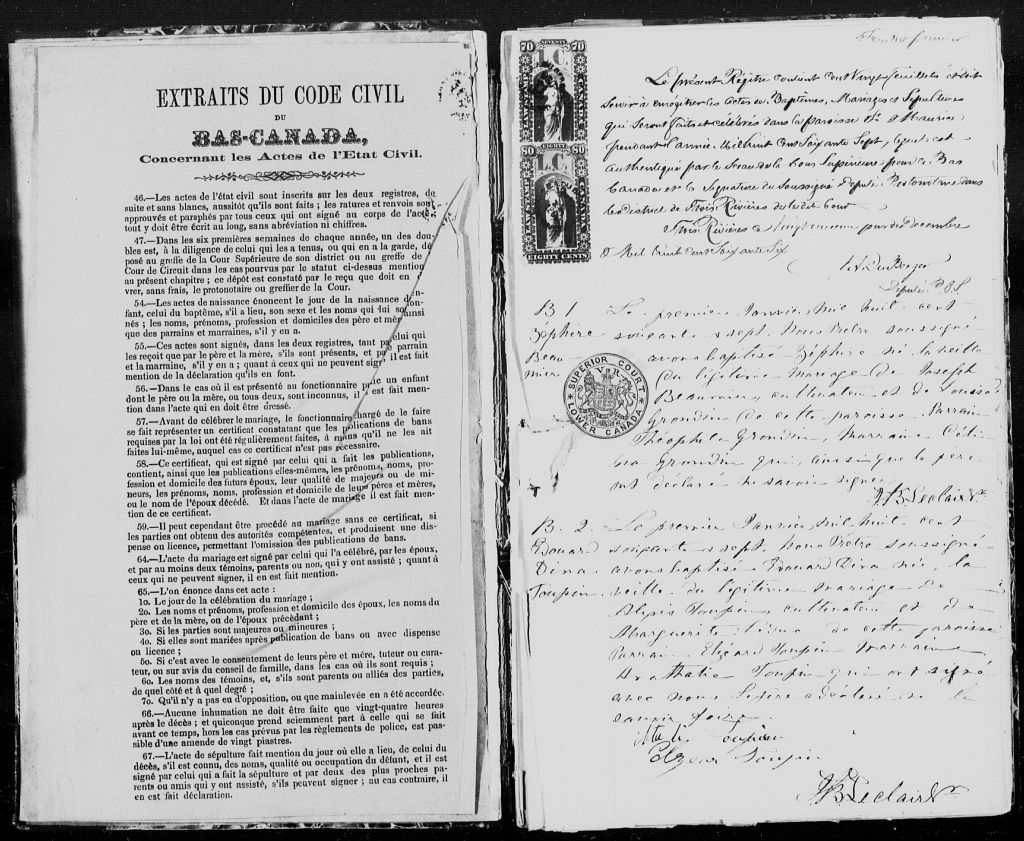 EXTRAITS DU CODE CIVIL
DU
BAS-CANADA,
Concernant les Actes de l'Etat Civil.
46.—Les actes de l'état civil sont inscrits sur les deux registres, de
suite et sans blancs, aussitôt qu'ils sont faits ; les ratures et renvois sont
approuvés et paraphés par tous ceux qui ont signé au corps de l'acte,
tout y doit être écrit au long, sans abréviation ni chiffres.
47.—Dans les six premières semaines de chaque année, un des dou-
bles est, à la diligence de celui qui les a tenus, ou qui en a la garde, dé-
posé au greffe de la Cour Supérieure de son district ou au greffe de
Cour de Circuit dans les cas pourvus par le statut ci-dessus mention
au présent chapitre ; ce dépôt est constaté par le reçu que doit en
vrer, sans frais, le protonotaire ou greffier de la Cour.
54.—Les actes de naissance énoncent le jour de la naissance de l'en-
fant, celui du baptême, s'il a lieu, son sexe et les noms qui lui sont don-
nés ; les noms, prénoms, profession et domiciles des père et mère, ainsi
que des parrains et marraines, s'il y en a.
55.—Ces actes sont signés, dans les deux registres, tant par celui qui
les reçoit que par le père et la mère, s'ils sont présents, et par le parrain
et la marraine, s'il y en a ; quant à ceux qui ne peuvent signer, il est fait
mention de la déclaration qu'ils en font.
56.—Dans le cas où il est présenté au fonctionnaire public un enfant
dont le père ou la mère, ou tous deux, sont inconnus, il en est fait men-
tion dans l'acte qui en doit être dressé.
57.—Avant de célébrer le mariage, le fonctionnaire chargé de le faire
se fait représenter un certificat constatant que les publications de bans
requises par la loi ont été régulièrement faites, à moins qu'il ne les ait
faites lui-même, auquel cas ce certificat n'est pas nécessaire.
58.—Ce certificat, qui est signé par celui qui a fait les publications,
contient, ainsi que les publications elles-mêmes, les prénoms, noms, pro-
fession et domicile des futurs époux, leur qualité de majeurs ou de mi-
neurs, les prénoms, noms, profession et domicile de leurs pères et mères,
ou le nom de l'époux décédé. Et dans l'acte de mariage il est fait men-
tion de ce certificat.
59.—Il peut cependant être procédé au mariage sans ce certificat, si
les parties ont obtenu des autorités compétentes, et produisent une dis-
pense ou licence, permettant l'omission des publications de bans.
64.—L'acte du mariage est signé par celui qui l'a célébré, par les époux,
et par au moins deux témoins, parents ou non, qui y ont assisté ; quant à
ceux qui ne peuvent signer, il en est fait mention.
65.—L'on énonce dans cet acte :
1o. Le jour de la célébration du mariage ;
2o. Les noms et prénoms, profession et domicile des époux, les noms du
père et de la mère, ou de l'époux précédant ;
3o. Si les parties sont majeures ou mineures ;
4o. Si elles sont mariées après publication de bans ou avec dispense
ou licence ;
5o. Si c'est avec le consentement de leurs père et mère, tuteur ou cura-
teur, ou sur avis du conseil de famille, dans les cas où ils sont requis ;
6o. Les noms des témoins, et, s'ils sont parents ou alliés des parties,
de quel côté et à quel degré ;
7o. Qu'il n'y a pas eu d'opposition, ou que mainlevée en a été accordée.
66.—Aucune inhumation ne doit être faite que vingt-quatre heures
après le décès ; et quiconque prend sciemment part à celle qui se fait
avant ce temps, hors les cas prévus par les règlements de police, est pas-
sible d'une amende de vingt piastres.
67.—L'acte de sépulture fait mention du jour où elle a lieu, de celui du
décès, s'il est connu, des noms, qualité ou occupation du défunt, et il est
signé par celui qui a fait la sépulture et par deux des plus proches pa-
rents ou amis qui y ont assisté, s'ils peuvent signer ; au cas contraire, il
en est fait déclaration.
70 NINETY 70
L.C.
80 EIGHTY 80
L.C.
EIGHTY CENTS
Le présent Régitre contient cent Vingt feuillets et doit
servir à enrégitrer les actes de Baptêmes, Mariages et Sépultures
qui seront faits et célébrés dans la paroisse St Maurice
pendant l'année Mil huit cent Soixante Sept, lequel est
authentiqué par le Sceau de la Cour Supérieure pour le Bas
Canada et la Signature du Soussigné Député Protonotaire dans
le District de Trois Rivières de la dite Cour
Trois Rivières ce Vingt unieme jour de Décembre
Mil huit cent Soixante Six
Député P.C.S.
SUPERIOR COURT
V R
LOWER CANADA
B 1 Le premier Janvier, mil huit cent
Zéphire soixante & sept, Nous Prêtre soussigné
Beau- avons baptisé Zéphire né la veille
mier du légitime mariage de Joseph
Beaumier, cultivateur et de
Grondin de cette paroisse. Parrain
Théophile Grondin, Marraine Céli-
na Grondin qui, ainsi que le père
ont déclaré ne savoir signer.
J B Leclair Ptr
B. 2. Le premier Janvier, mil huit cent
Edouard soixante & sept, Nous Prêtre soussigné
Dina avons baptisé Edouard Dina né, la
Toupin veille du légitime mariage de
Alexis Toupin cultivateur et de
Marguerite de cette paroisse
Parrain Elzéard Toupin marraine
Toupin qui ont signé
avec nous. Le père a déclaré ne le
savoir faire.
Toupin
Elzear Toupin
J B Leclair Ptr